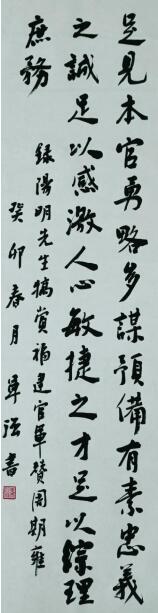 足見本官勇略多謀預備有素忠義
之誠足以感激人心敏捷之才足以綜理
庶務
錄陽明先生犒賞福建官軍贊周期雍
癸卯春月 軍強書